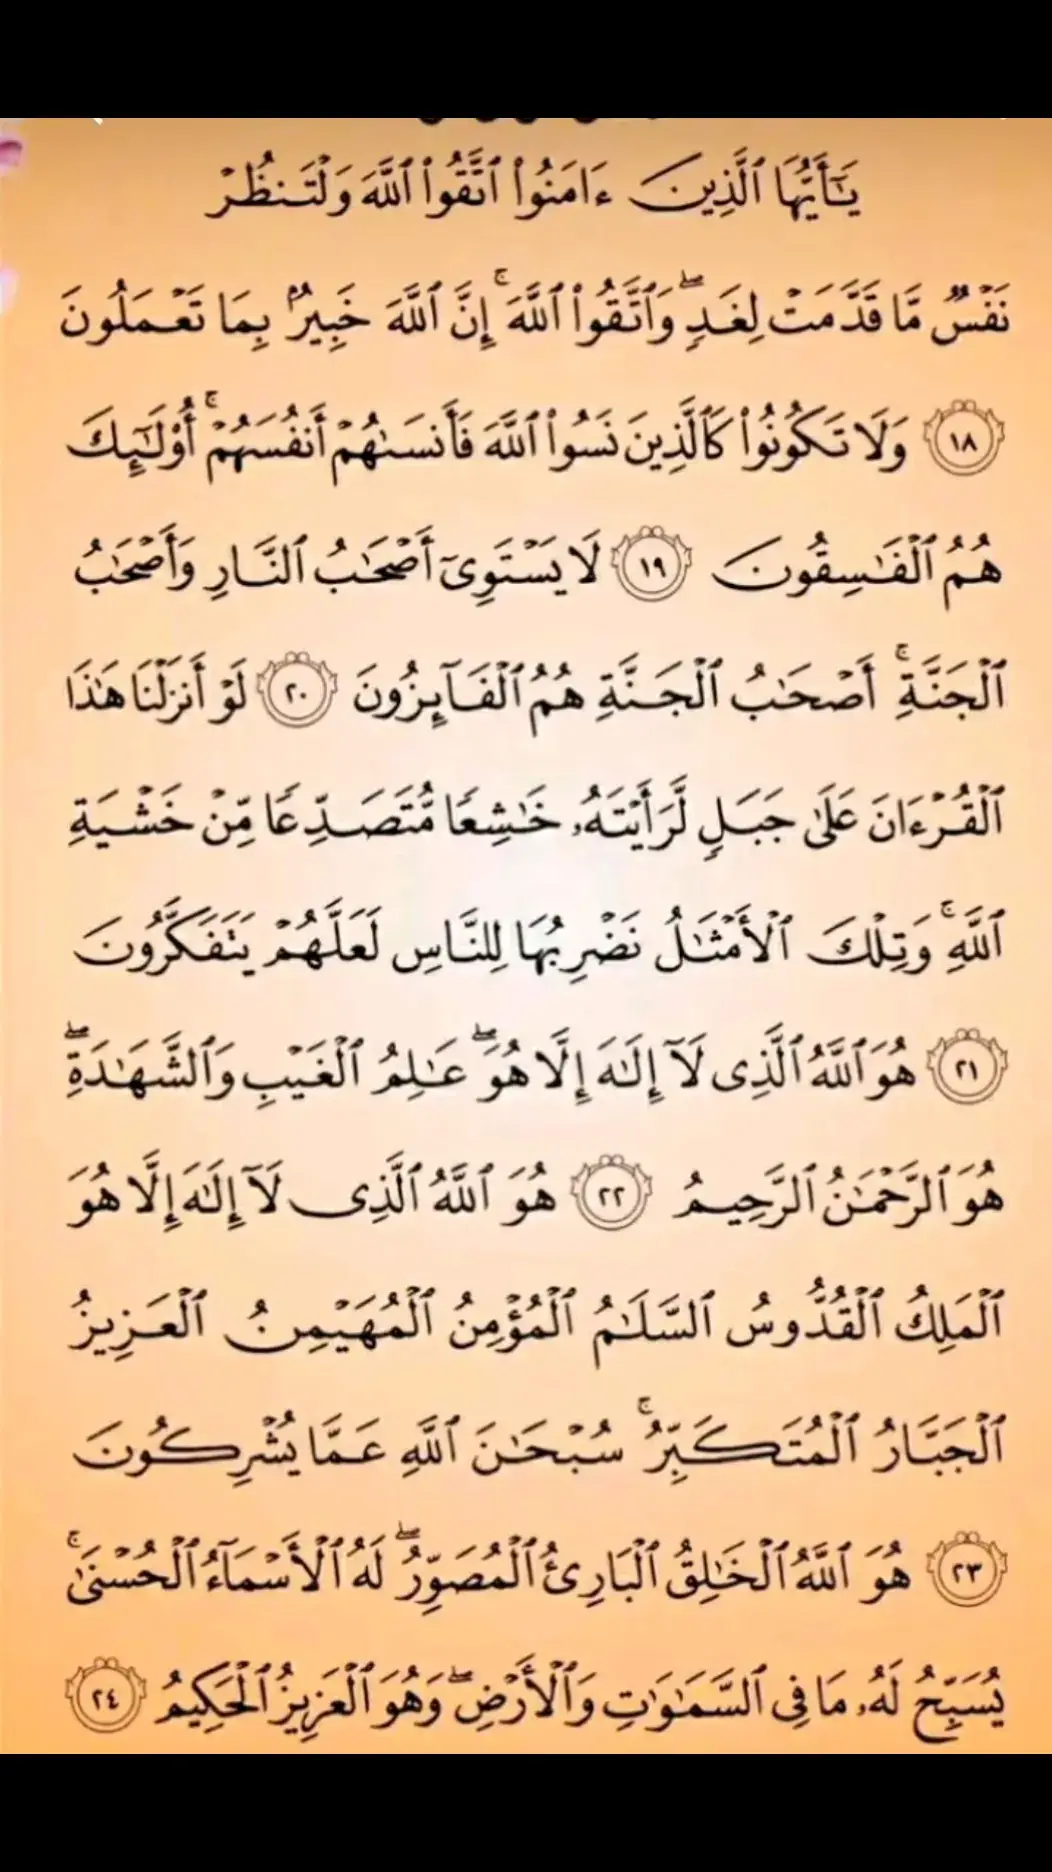 يَـٰٓأَيُّهَا ٱلَّذِينَ ءَامَنُوا۟ ٱتَّقُوا۟ ٱللَّهَ وَلْتَنظُرْ
نَفْسٌ مَّا قَدَّمَتْ لِغَدٍ ۖ وَٱتَّقُوا۟ ٱللَّهَ ۚ إِنَّ ٱللَّهَ خَبِيرٌۢ بِمَا تَعْمَلُونَ
١٨ وَلَا تَكُونُوا۟ كَٱلَّذِينَ نَسُوا۟ ٱللَّهَ فَأَنسَىٰهُمْ أَنفُسَهُمْ ۚ أُو۟لَـٰٓئِكَ
هُمُ ٱلْفَـٰسِقُونَ ١٩ لَا يَسْتَوِىٓ أَصْحَـٰبُ ٱلنَّارِ وَأَصْحَـٰبُ
ٱلْجَنَّةِ ۚ أَصْحَـٰبُ ٱلْجَنَّةِ هُمُ ٱلْفَآئِزُونَ ٢٠ لَوْ أَنزَلْنَا هَـٰذَا
ٱلْقُرْءَانَ عَلَىٰ جَبَلٍ لَّرَأَيْتَهُۥ خَـٰشِعًا مُّتَصَدِّعًا مِّنْ خَشْيَةِ
ٱللَّهِ ۚ وَتِلْكَ ٱلْأَمْثَـٰلُ نَضْرِبُهَا لِلنَّاسِ لَعَلَّهُمْ يَتَفَكَّرُونَ
٢١ هُوَ ٱللَّهُ ٱلَّذِى لَآ إِلَـٰهَ إِلَّا هُوَ ۖ عَـٰلِمُ ٱلْغَيْبِ وَٱلشَّهَـٰدَةِ ۖ
هُوَ ٱلرَّحْمَـٰنُ ٱلرَّحِيمُ ٢٢ هُوَ ٱللَّهُ ٱلَّذِى لَآ إِلَـٰهَ إِلَّا هُوَ
ٱلْمَلِكُ ٱلْقُدُّوسُ ٱلسَّلَـٰمُ ٱلْمُؤْمِنُ ٱلْمُهَيْمِنُ ٱلْعَزِيزُ
ٱلْجَبَّارُ ٱلْمُتَكَبِّرُ ۚ سُبْحَـٰنَ ٱللَّهِ عَمَّا يُشْرِكُونَ
٢٣ هُوَ ٱللَّهُ ٱلْخَـٰلِقُ ٱلْبَارِئُ ٱلْمُصَوِّرُ ۖ لَهُ ٱلْأَسْمَآءُ ٱلْحُسْنَىٰ ۚ
يُسَبِّحُ لَهُۥ مَا فِى ٱلسَّمَـٰوَٰتِ وَٱلْأَرْضِ ۖ وَهُوَ ٱلْعَزِيزُ ٱلْحَكِيمُ ٢٤